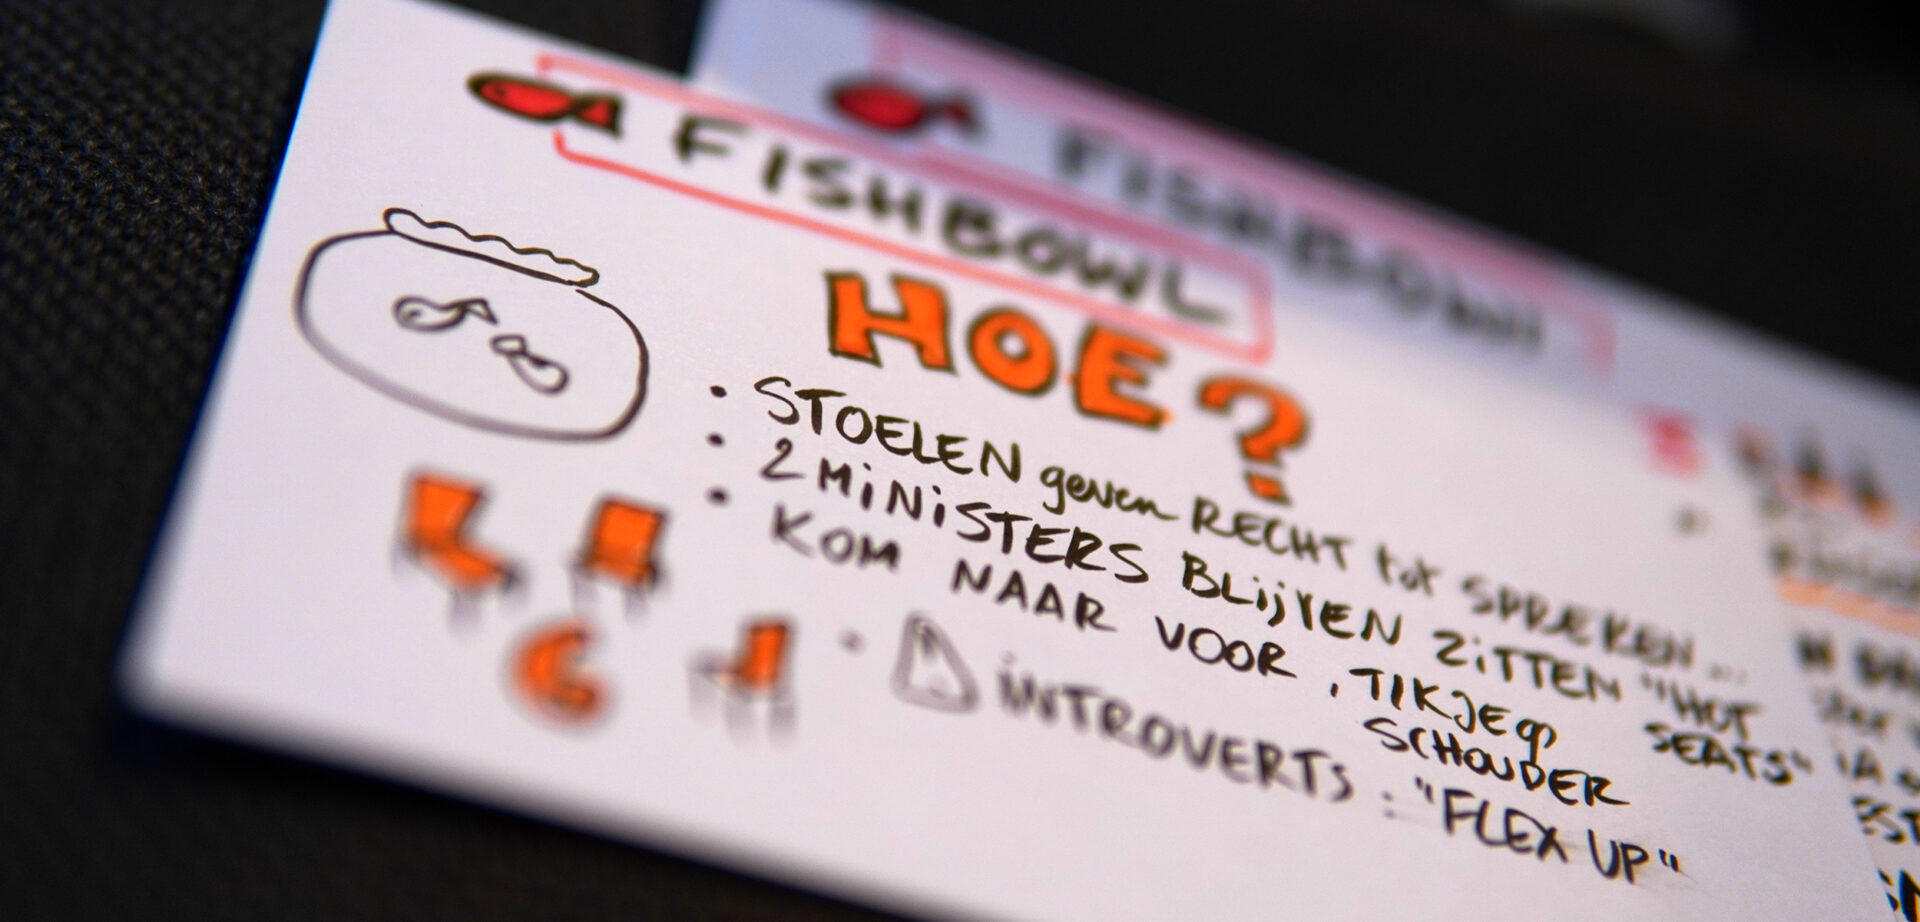 FISHBOWL
FISHBOWL
HOE?
• STOELEN geven RECHT tot SPREKEN...
• 2 MiNiSTERS BLijVEN ZiTTEN "HOT SEATS"
• KOM NAAR VOOR, TIKJE op SCHOUDER
• iNTROVERTS: "FLEX UP"